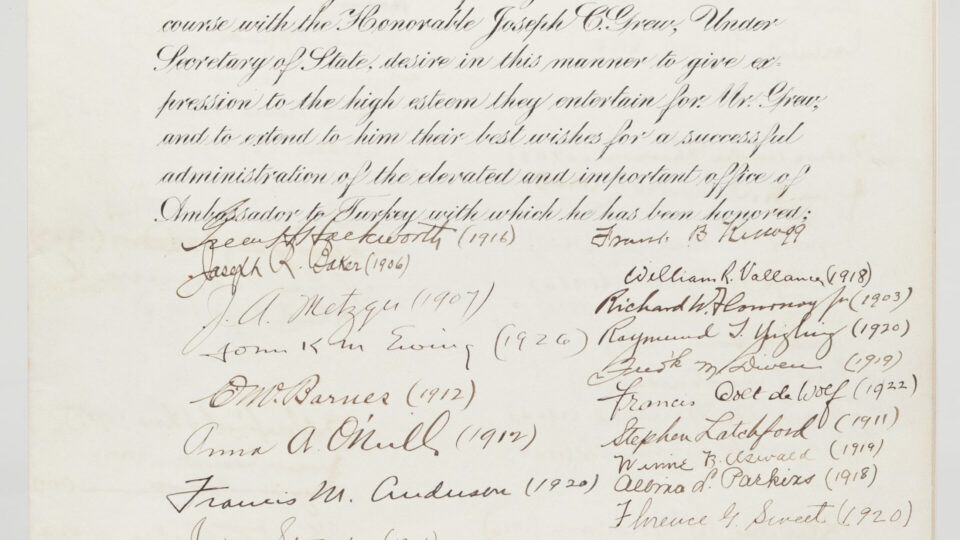 course with the Honorable Joseph C. Grew, Under
Secretary of State, desire in this manner to give ex-
pression to the high esteem they entertain for Mr. Grew,
and to extend to him their best wishes for a successful
administration of the elevated and important office of
Ambassador to Turkey with which he has been honored:
Green H Hackworth (1916)
Joseph R. Baker (1906)
J. A. Metzger (1907)
John K M Ewing (1926)
Barnes (1912)
Anna A. O'Neill (1912)
Francis M. Anderson (1920)
Frank B Kellogg
William R. Vallance (1918)
Richard W. Flournoy Jr (1903)
Raymund T. Yingling (1920)
(1919)
Francis Colt de Wolf (1922)
Stephen Latchford (1911)
Winnie B. Oswald (1919)
Albina L. Parkins (1918)
Florence G. Sweet (1920)